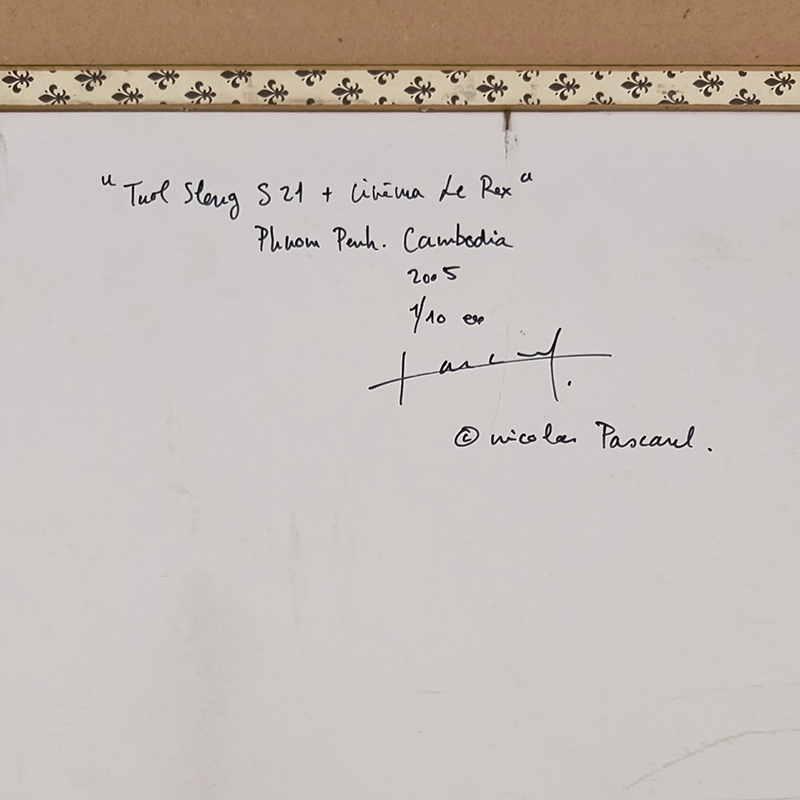 "Tuol Sleng S21 + Cinéma Le Rex"
Phnom Penh. Cambodia
2005
1/10 ex
Pascarel.
© nicolas Pascarel.